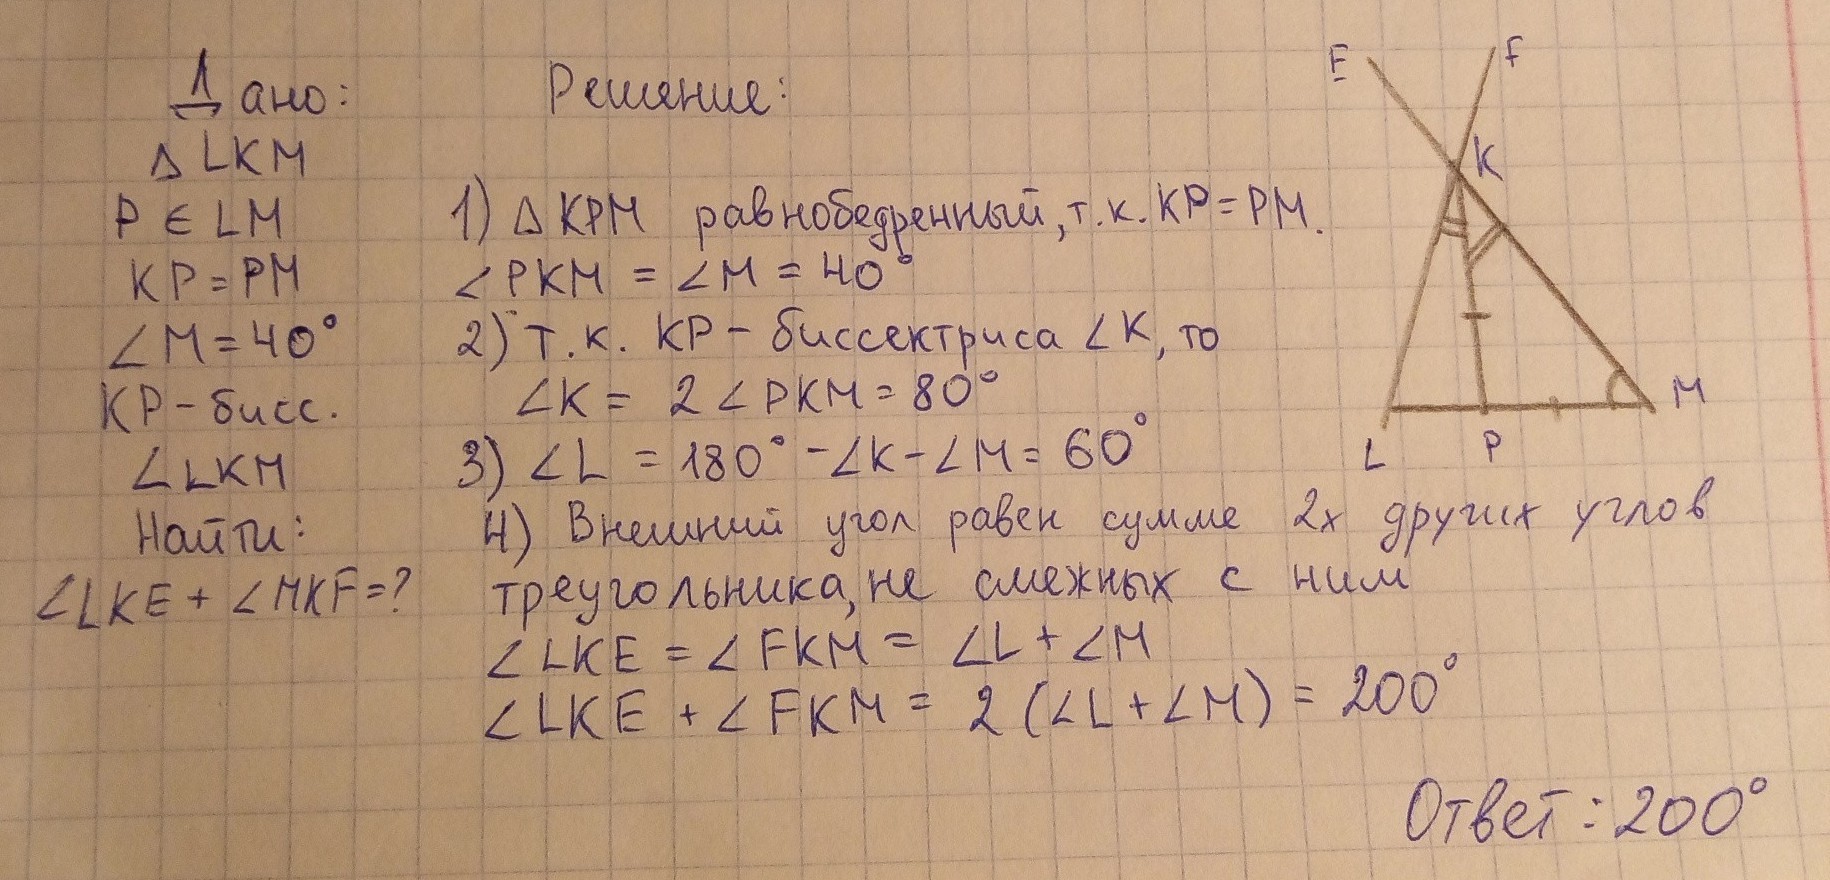 Дано:
Δ LKM
P ∈ LM
KP = PM
∠M = 40°
KP - бисс.
∠LKM
Найти:
∠LKE + ∠MKF = ?
Решение:
1) Δ KPM равнобедренный, т.к. KP = PM.
∠PKM = ∠M = 40°
2) т.к. KP - биссектриса ∠K, то
∠K = 2 ∠PKM = 80°
3) ∠L = 180° - ∠K - ∠M = 60°
4) Внешний угол равен сумме 2х других углов
треугольника, не смежных с ним
∠LKE = ∠FKM = ∠L + ∠M
∠LKE + ∠FKM = 2 (∠L + ∠M) = 200°
Ответ: 200°
E
F
K
M
L
P